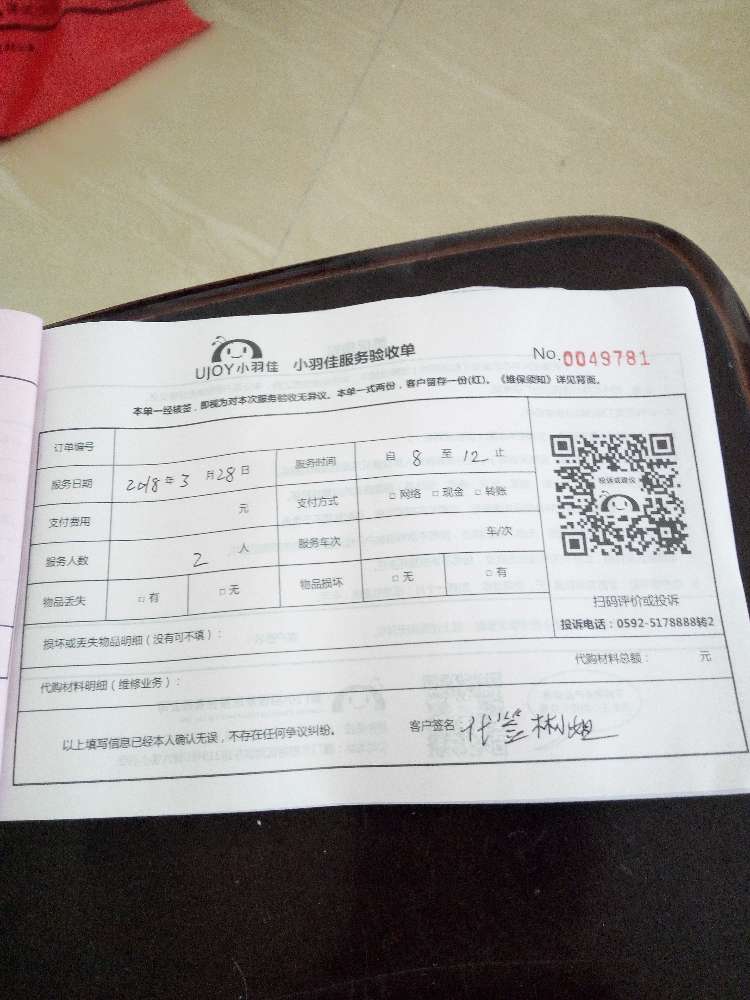 UJOY小羽佳 小羽佳服务验收单 No. 0049781
本单一经核签,即视为对本次服务验收无异议。本单一式两份,客户留存一份(红)。《维保须知》详见背面。
订单编号
服务日期 2018年3月28日 服务时间 自 8 至 12 止
支付费用 元 支付方式 □网络 □现金 □转账
服务人数 2 人 服务车次 车/次
物品丢失 □有 □无 物品损坏 □无 □有
投诉或建议
扫码评价或投诉
投诉电话:0592-5178888转2
损坏或丢失物品明细(没有可不填):
代购材料明细(维修业务): 代购材料总额: 元
以上填写信息已经本人确认无误,不存在任何争议纠纷。 客户签名 代签 林姐